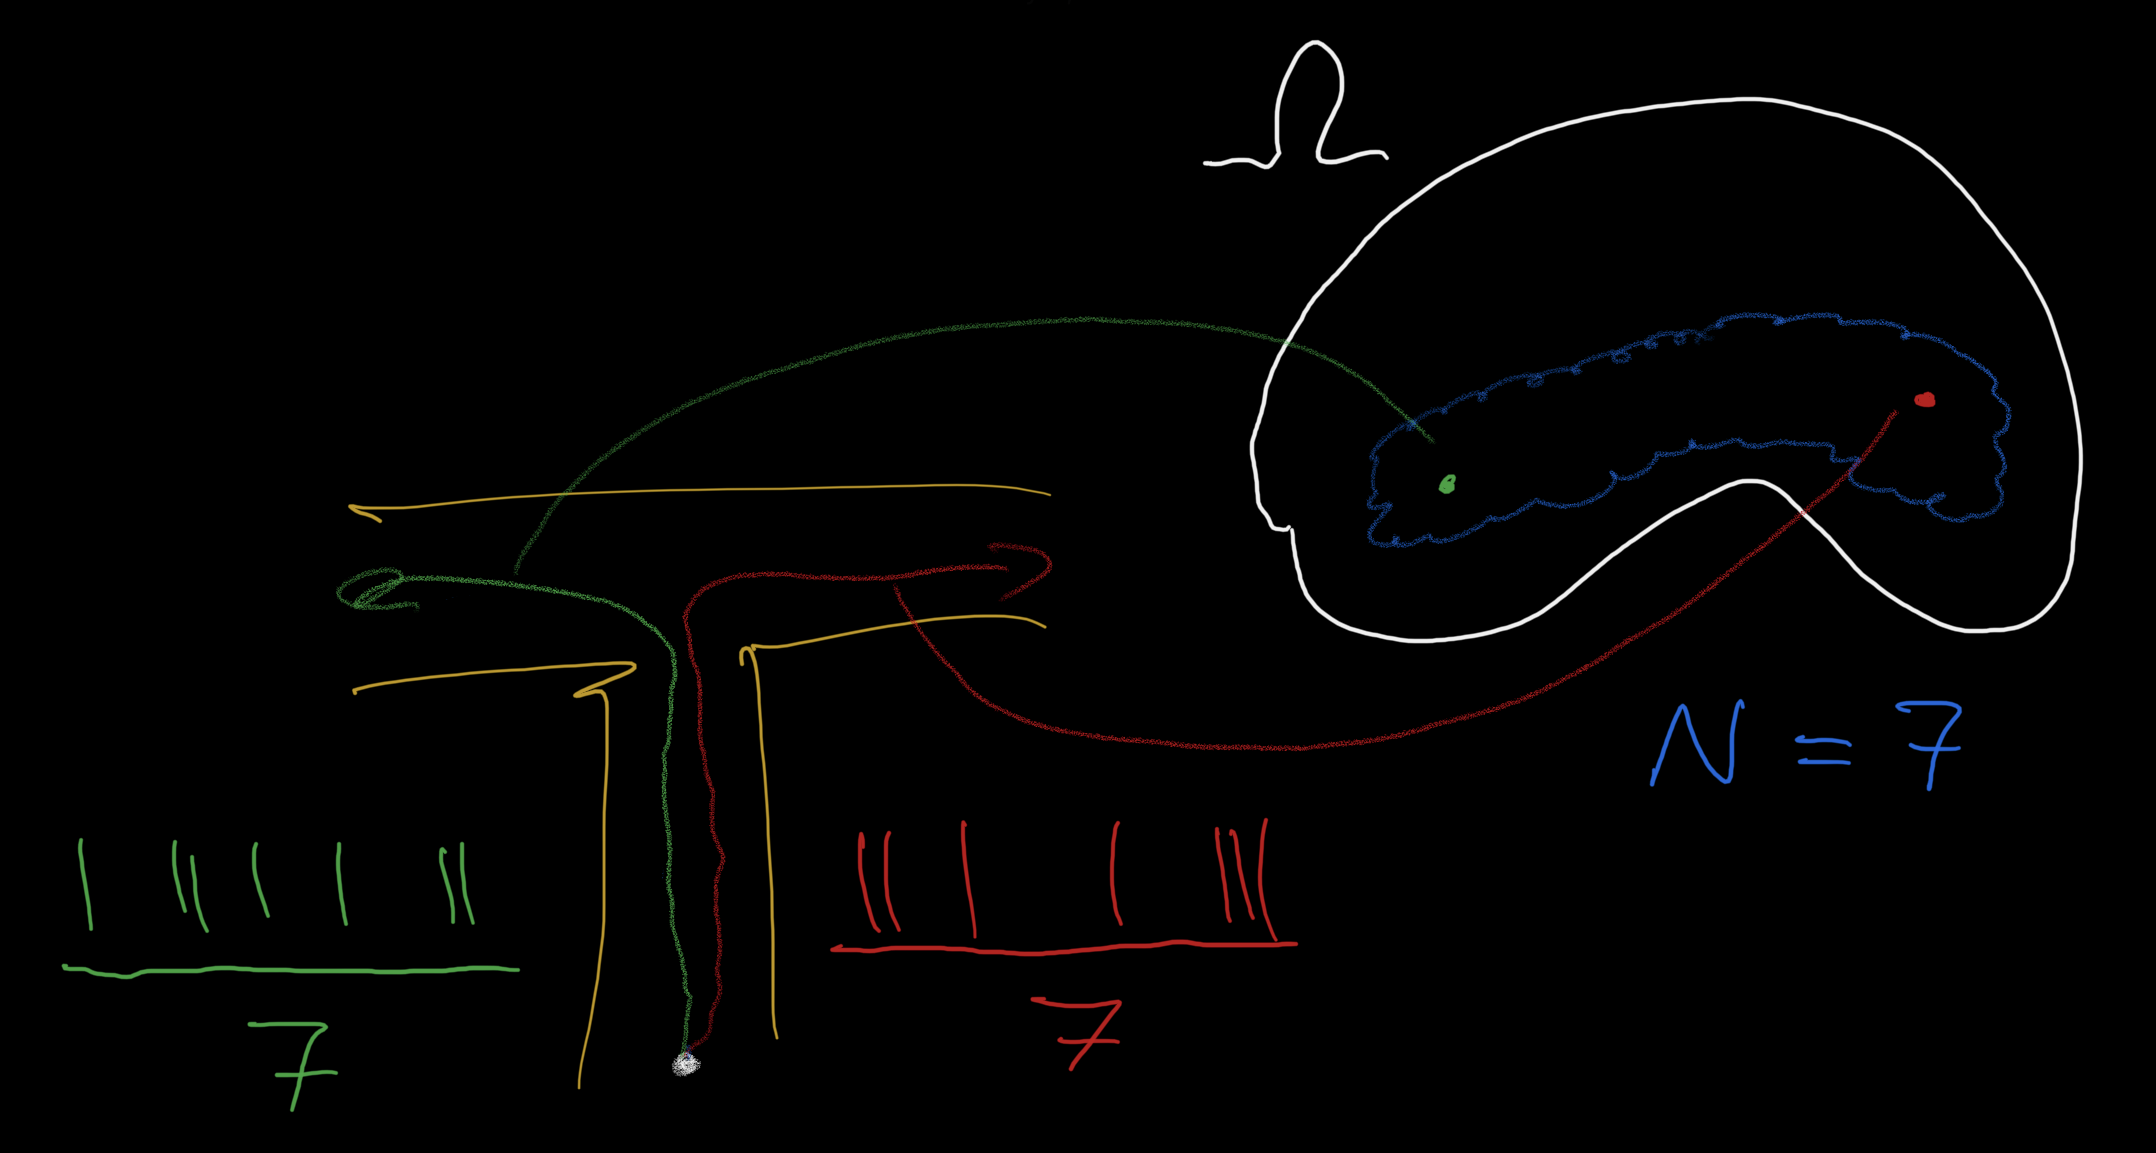 Ω
N = 7
7
7